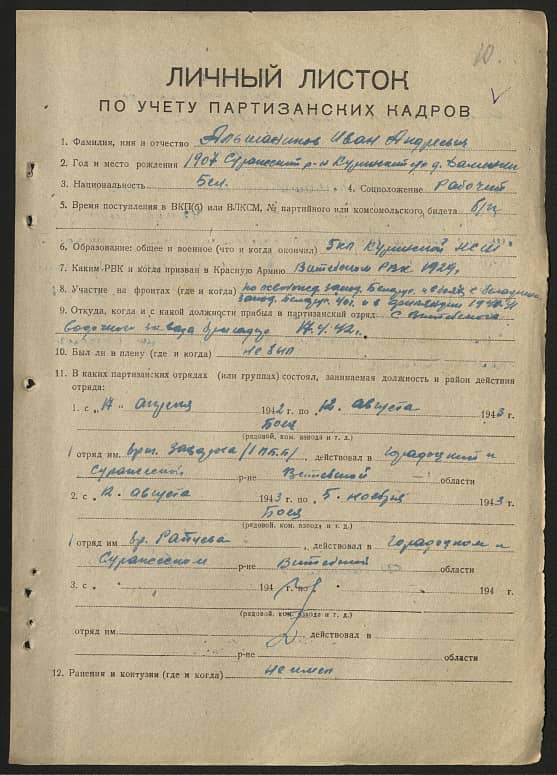 10.
ЛИЧНЫЙ ЛИСТОК
ПО УЧЕТУ ПАРТИЗАНСКИХ КАДРОВ
1. Фамилия, имя и отчество Иван Андреевич
2. Год и место рождения 1907 Суражский р-н Куринский д.
3. Национальность Бел. 4. Соцположение Рабочий
5. Время поступления в ВКП(б) или ВЛКСМ, № партийного или комсомольского билета б/п
6. Образование: общее и военное (что и когда окончил) 5 кл Куринской НСШ
7. Каким РВК и когда призван в Красную Армию Витебским РВК 1929г.
8. Участие на фронтах (где и когда) по освобожд. запад. Белор.
запад. Белор. и в Финляндии
9. Откуда, когда и с какой должности прибыл в партизанский отряд: с Витебского
завода 17.4.42г.
10. Был ли в плену (где и когда) не был
11. В каких партизанских отрядах (или группах) состоял, занимаемая должность и район действия
отряда:
1. с „17" апреля 1942 г. по 12. августа 1943 г.
Боец
(рядовой, ком. взвода и т. д.)
отряд им. действовал в Городоцком и
Суражском р-не Витебской области
2. с „12. августа 1943 г. по 5. ноября 1943 г.
Боец
(рядовой, ком. взвода и т. д.)
отряд им. бр. Райцева, действовал в Городоцком и
Суражском р-не Витебской области
3. с „ 194 г. по 194 г.
(рядовой, ком. взвода и т. д.)
отряд им. действовал в
р-не области
12. Ранения и контузии (где и когда) не имел